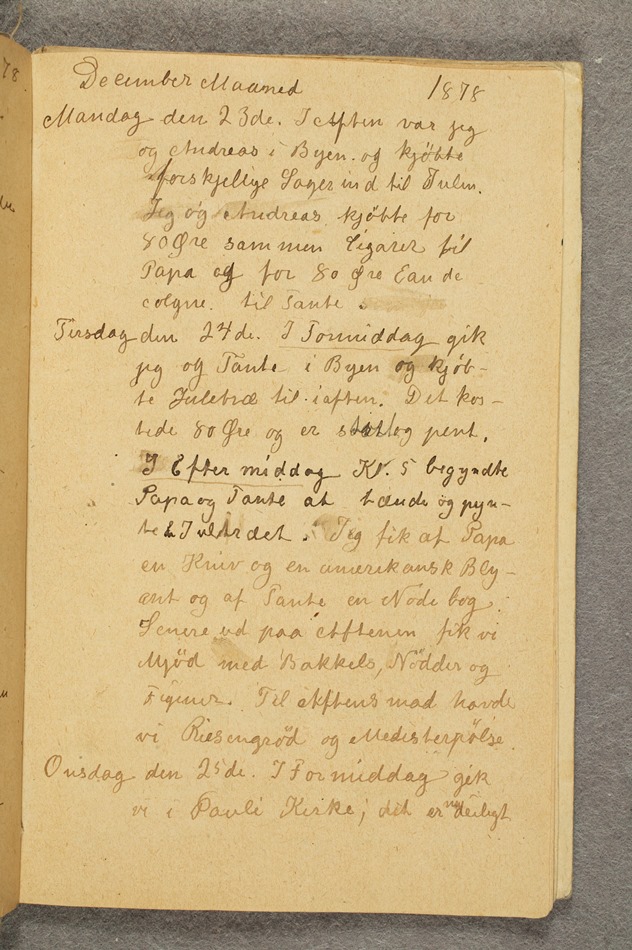 December Maaned 1878
Mandag den 23de. I Aften var jeg
og Andreas i Byen og kjöbte
forskjellige Sager ind til Julen.
Jeg og Andreas kjöbte for
80 Øre sammen Cigarer til
Papa og for 80 Øre Eau de
cologne til Tante.
Tirsdag den 24de. I Formiddag gik
jeg og Tante i Byen og kjöb-
te Juletræ til iaften. Det kos-
tede 80 Øre og er stort og pent.
I Eftermiddag Kl. 5 begyndte
Papa og Tante at tænde og pyn-
te Juletræet. Jeg fik af Papa
en Kniv og en amerikansk Bly-
ant og af Tante en Node bog.
Senere ud paa Aftenen fik vi
Mjöd med Bakkels, Nödder og
Figener. Til Aftensmad havde
vi Riesengröd og Medisterpölse.
Onsdag den 25de. I Formiddag gik
vi i Pauli Kirke; det er deiligt